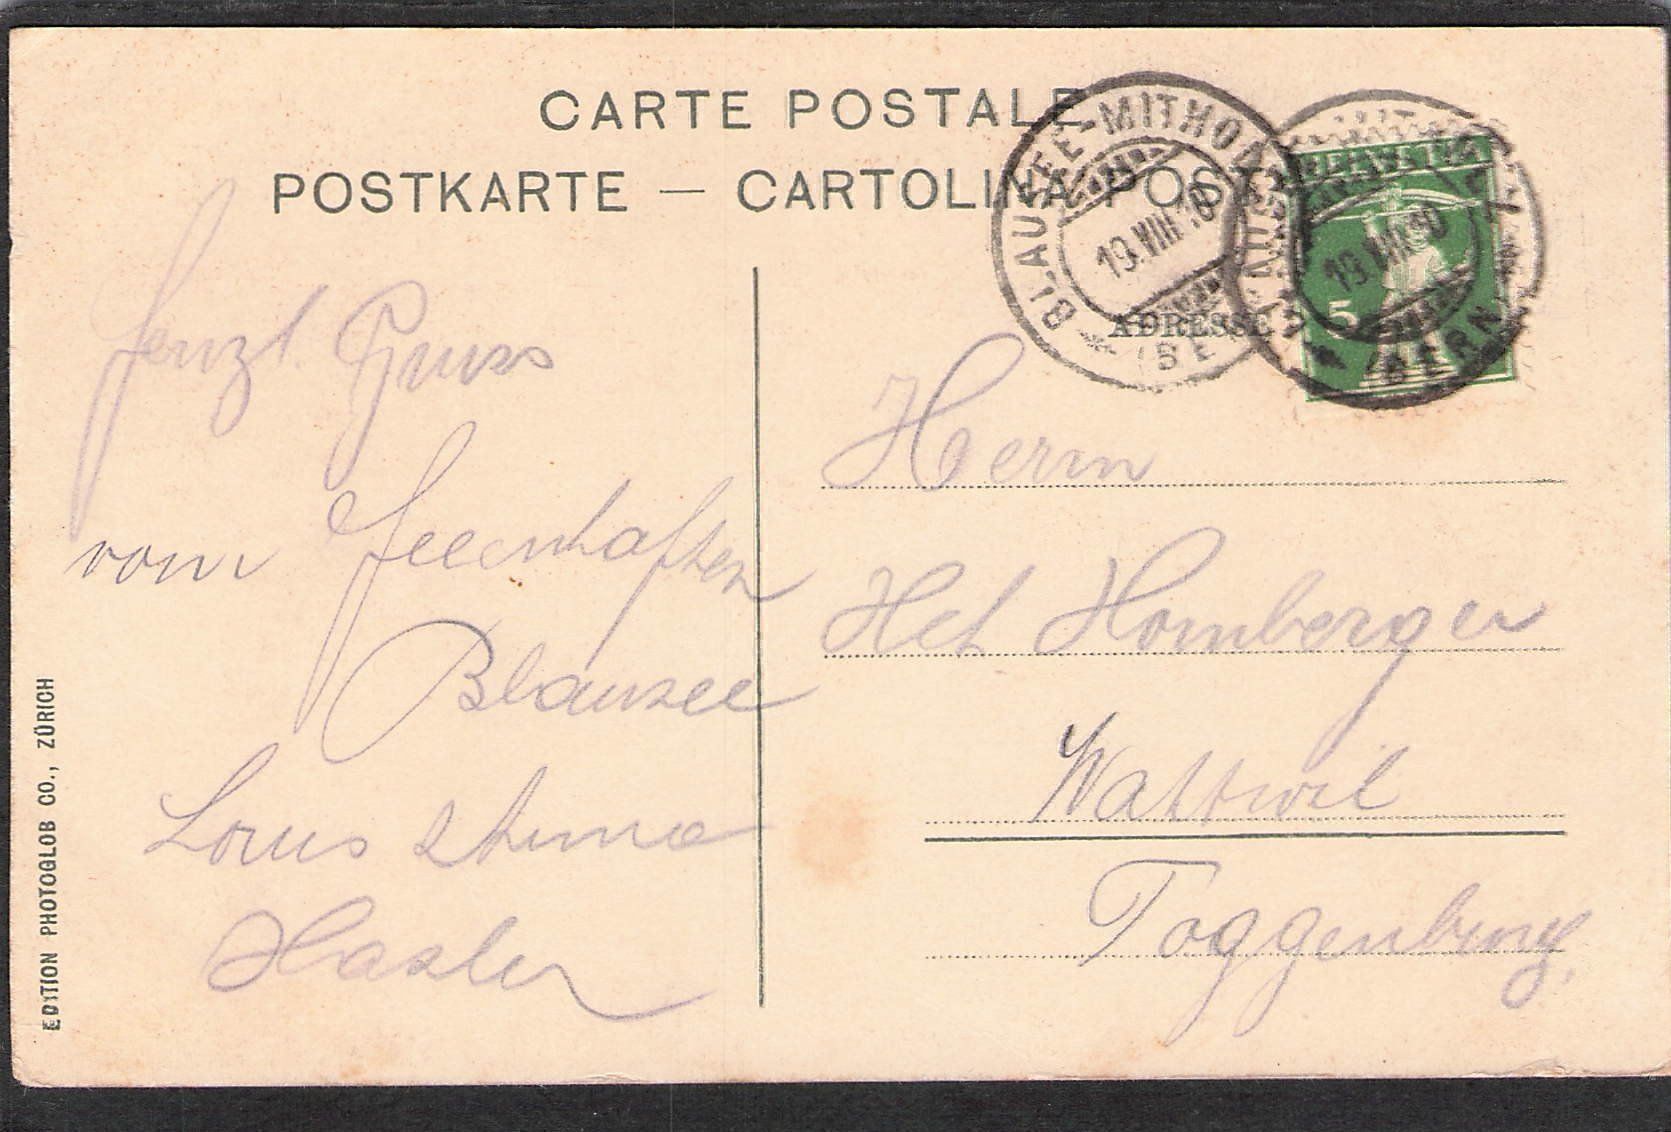 CARTE POSTALE
POSTKARTE — CARTOLINA POST
BLAUSEE-MITHO
19.VIII.10
(BE
HELVETIA
5
19.VIII.10
(BERN)
ADRESSE
Gruss
vom feenhaften
Blausee
Louis
Hasler
Herrn
Hch Homberger
Wattwil
Toggenburg.
EDITION PHOTOGLOB CO., ZÜRICH